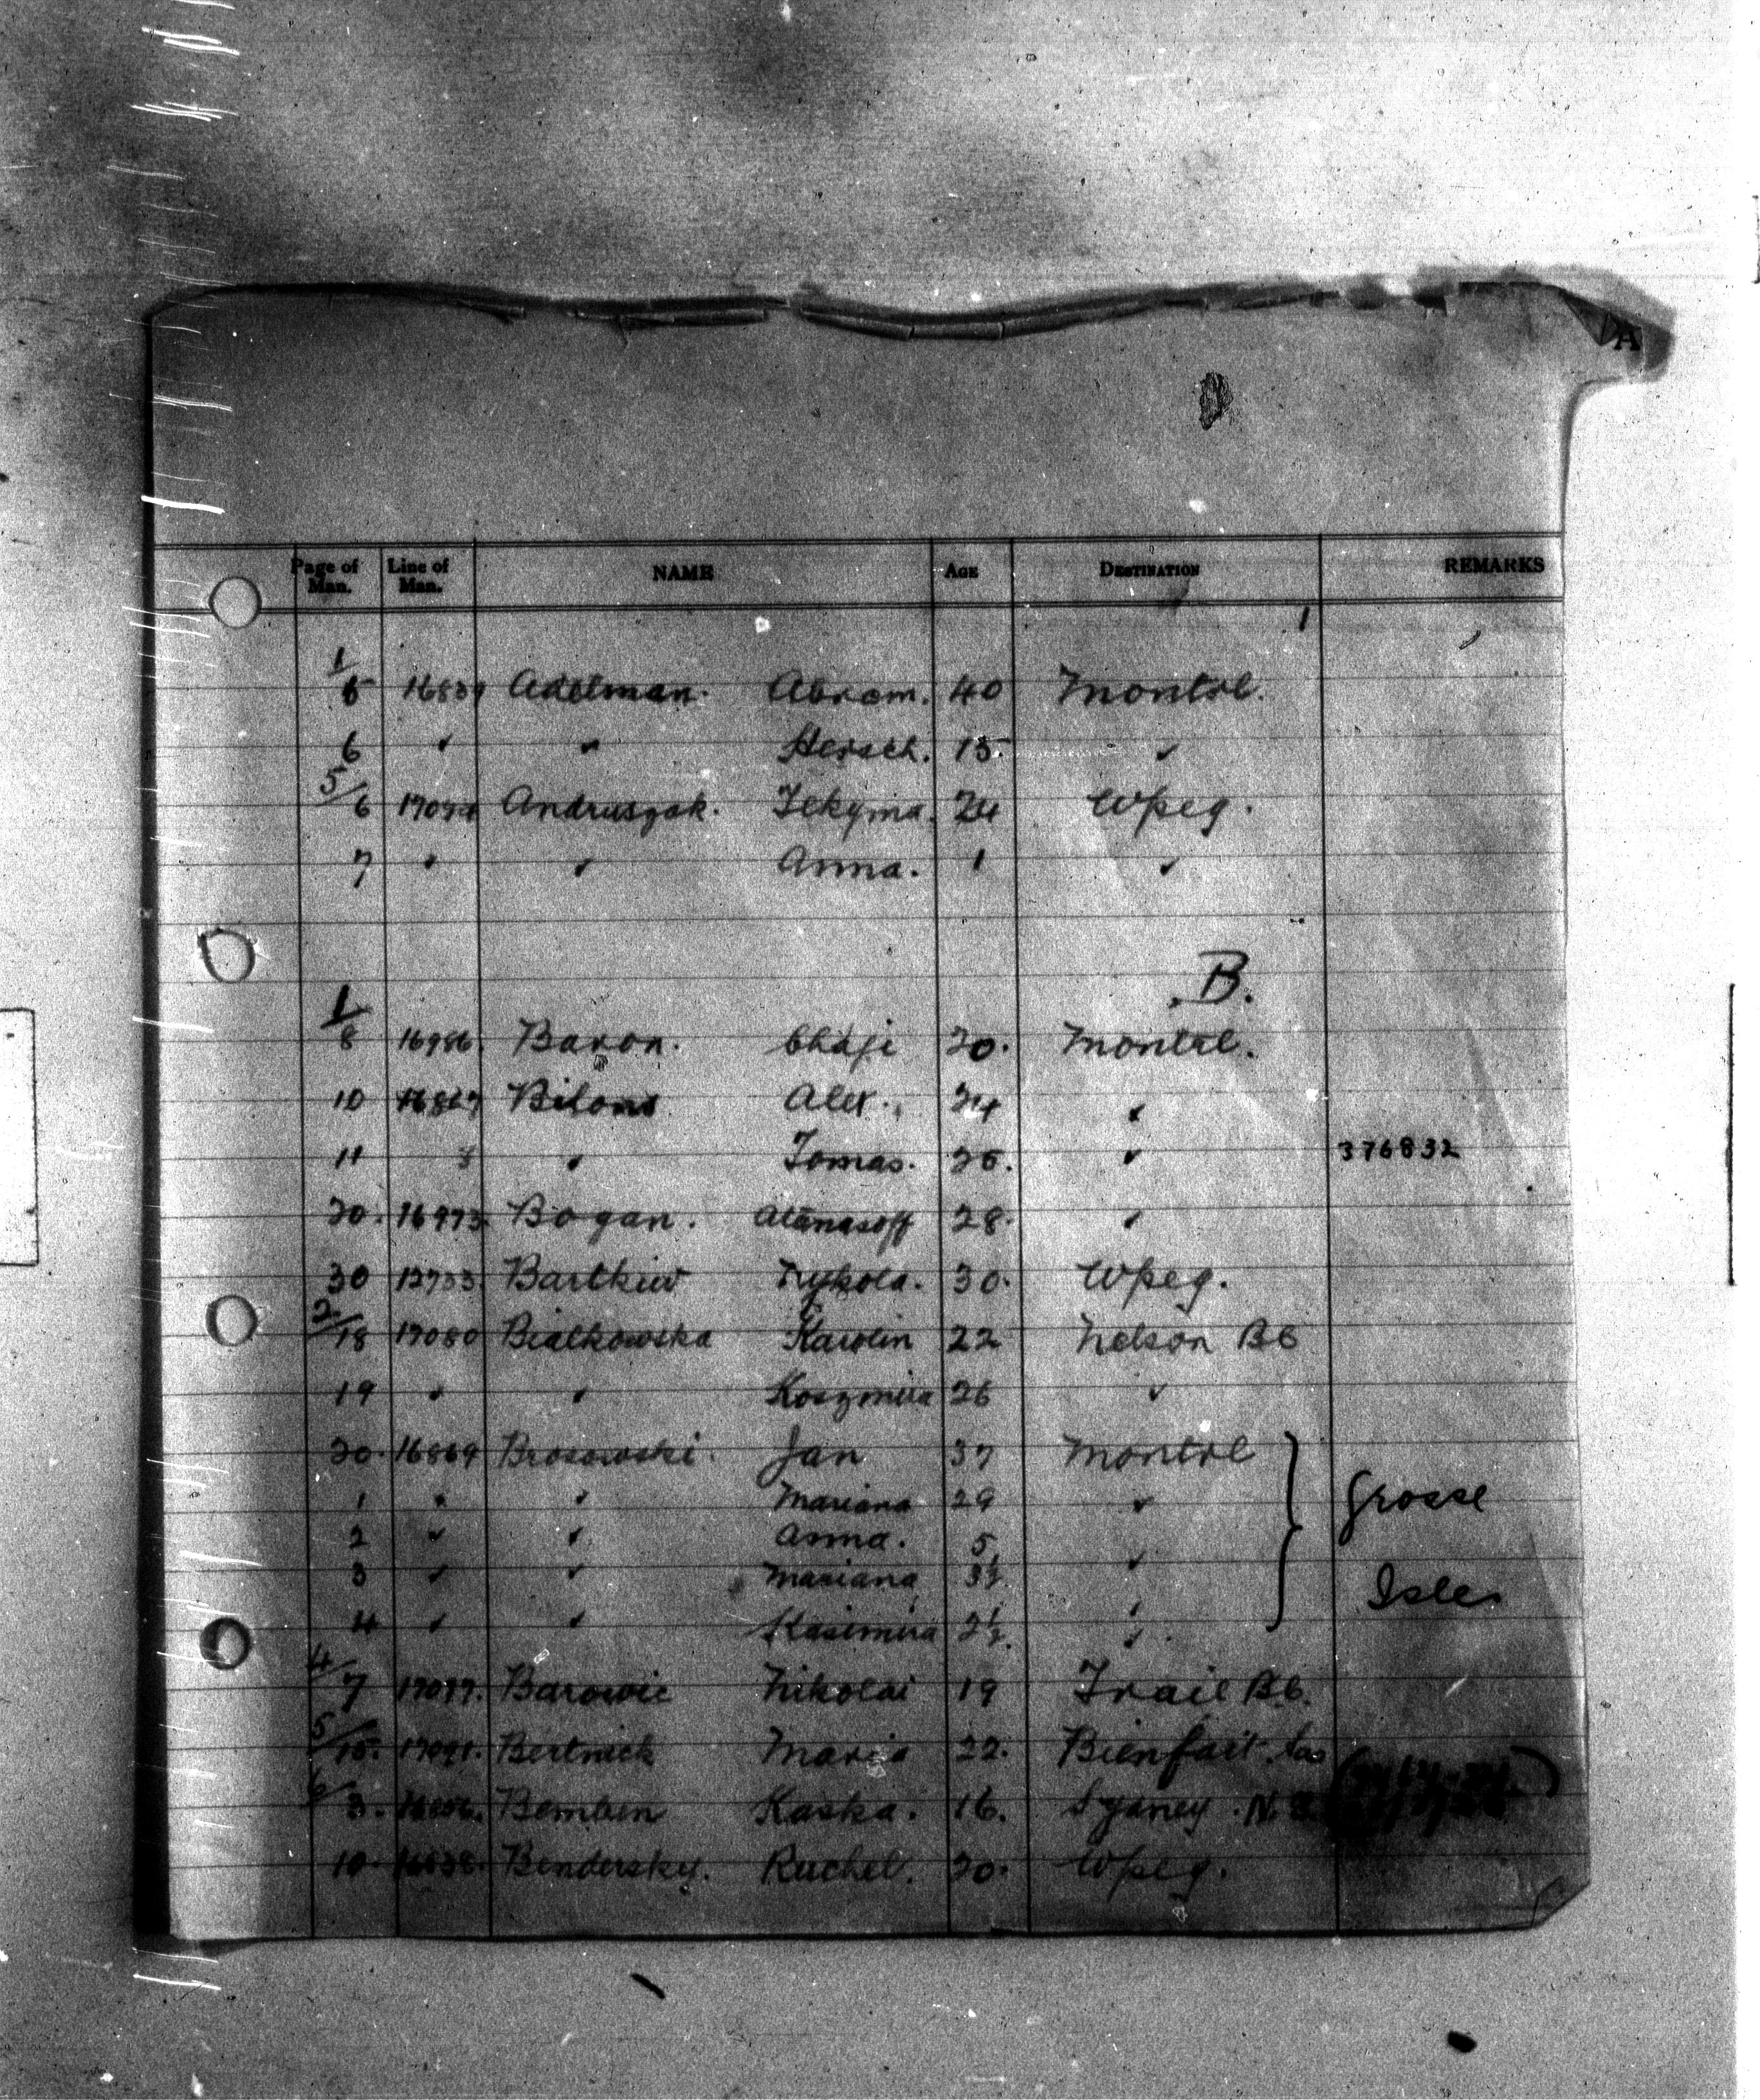 A
Page of Man. Line of Man. NAME AGE DESTINATION REMARKS
1
1/5 16839 Adelman. Abram. 40 Montrl.
6 " " Hersch. 15. "
5/6 Andruszak. Tekyma. 24 Wpeg.
7 " " Anna. 1 "
B.
1/8 16986. Baron. Chaje 20. Montrl.
10 16867 Alex. 24 "
11 8 " Tomas. 25. " 376832
20. 16973. Bogan. Atanasoff 28. "
30 12733. Bartkiw 30. Wpeg.
2/18 17080 Bialkowska Karolin 22 Nelson BC
19 " " Koszmira 26 "
20. 16869 Brosowski. Jan 37 Montrl
1 " " Mariana 29 " Grosse
2 " " Anna. 5
3 " " Mariana 3½ "
4 " " Kasimira 2½. " Isle
4/7 17077. Barowic Nikolai 19 Trail B.C.
5/15. 17091. Bertnick Maria 22. Bienfait. Sas
6/3. 16856. Bemben Kaska. 16. Sydney. N.S.
10. 16838. Bendersky. Ruchel. 20. Wpeg.